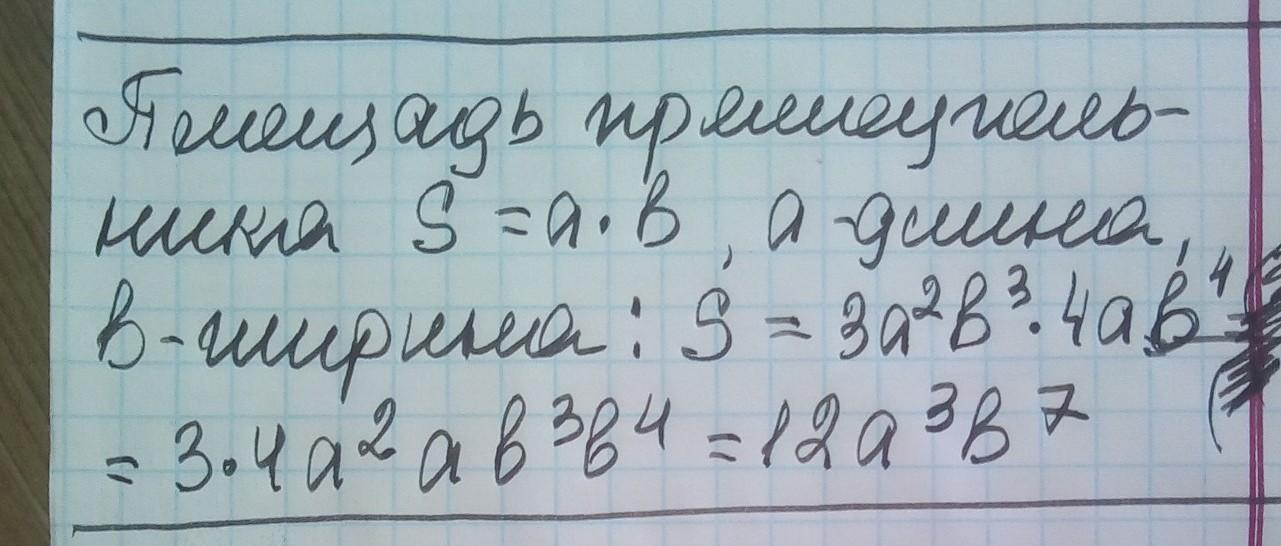 Площадь прямоуголь-
ника S = a · b, a - длина,
b - ширина: S = 3a²b³ · 4ab⁴
= 3·4a²ab³b⁴ = 12a³b⁷